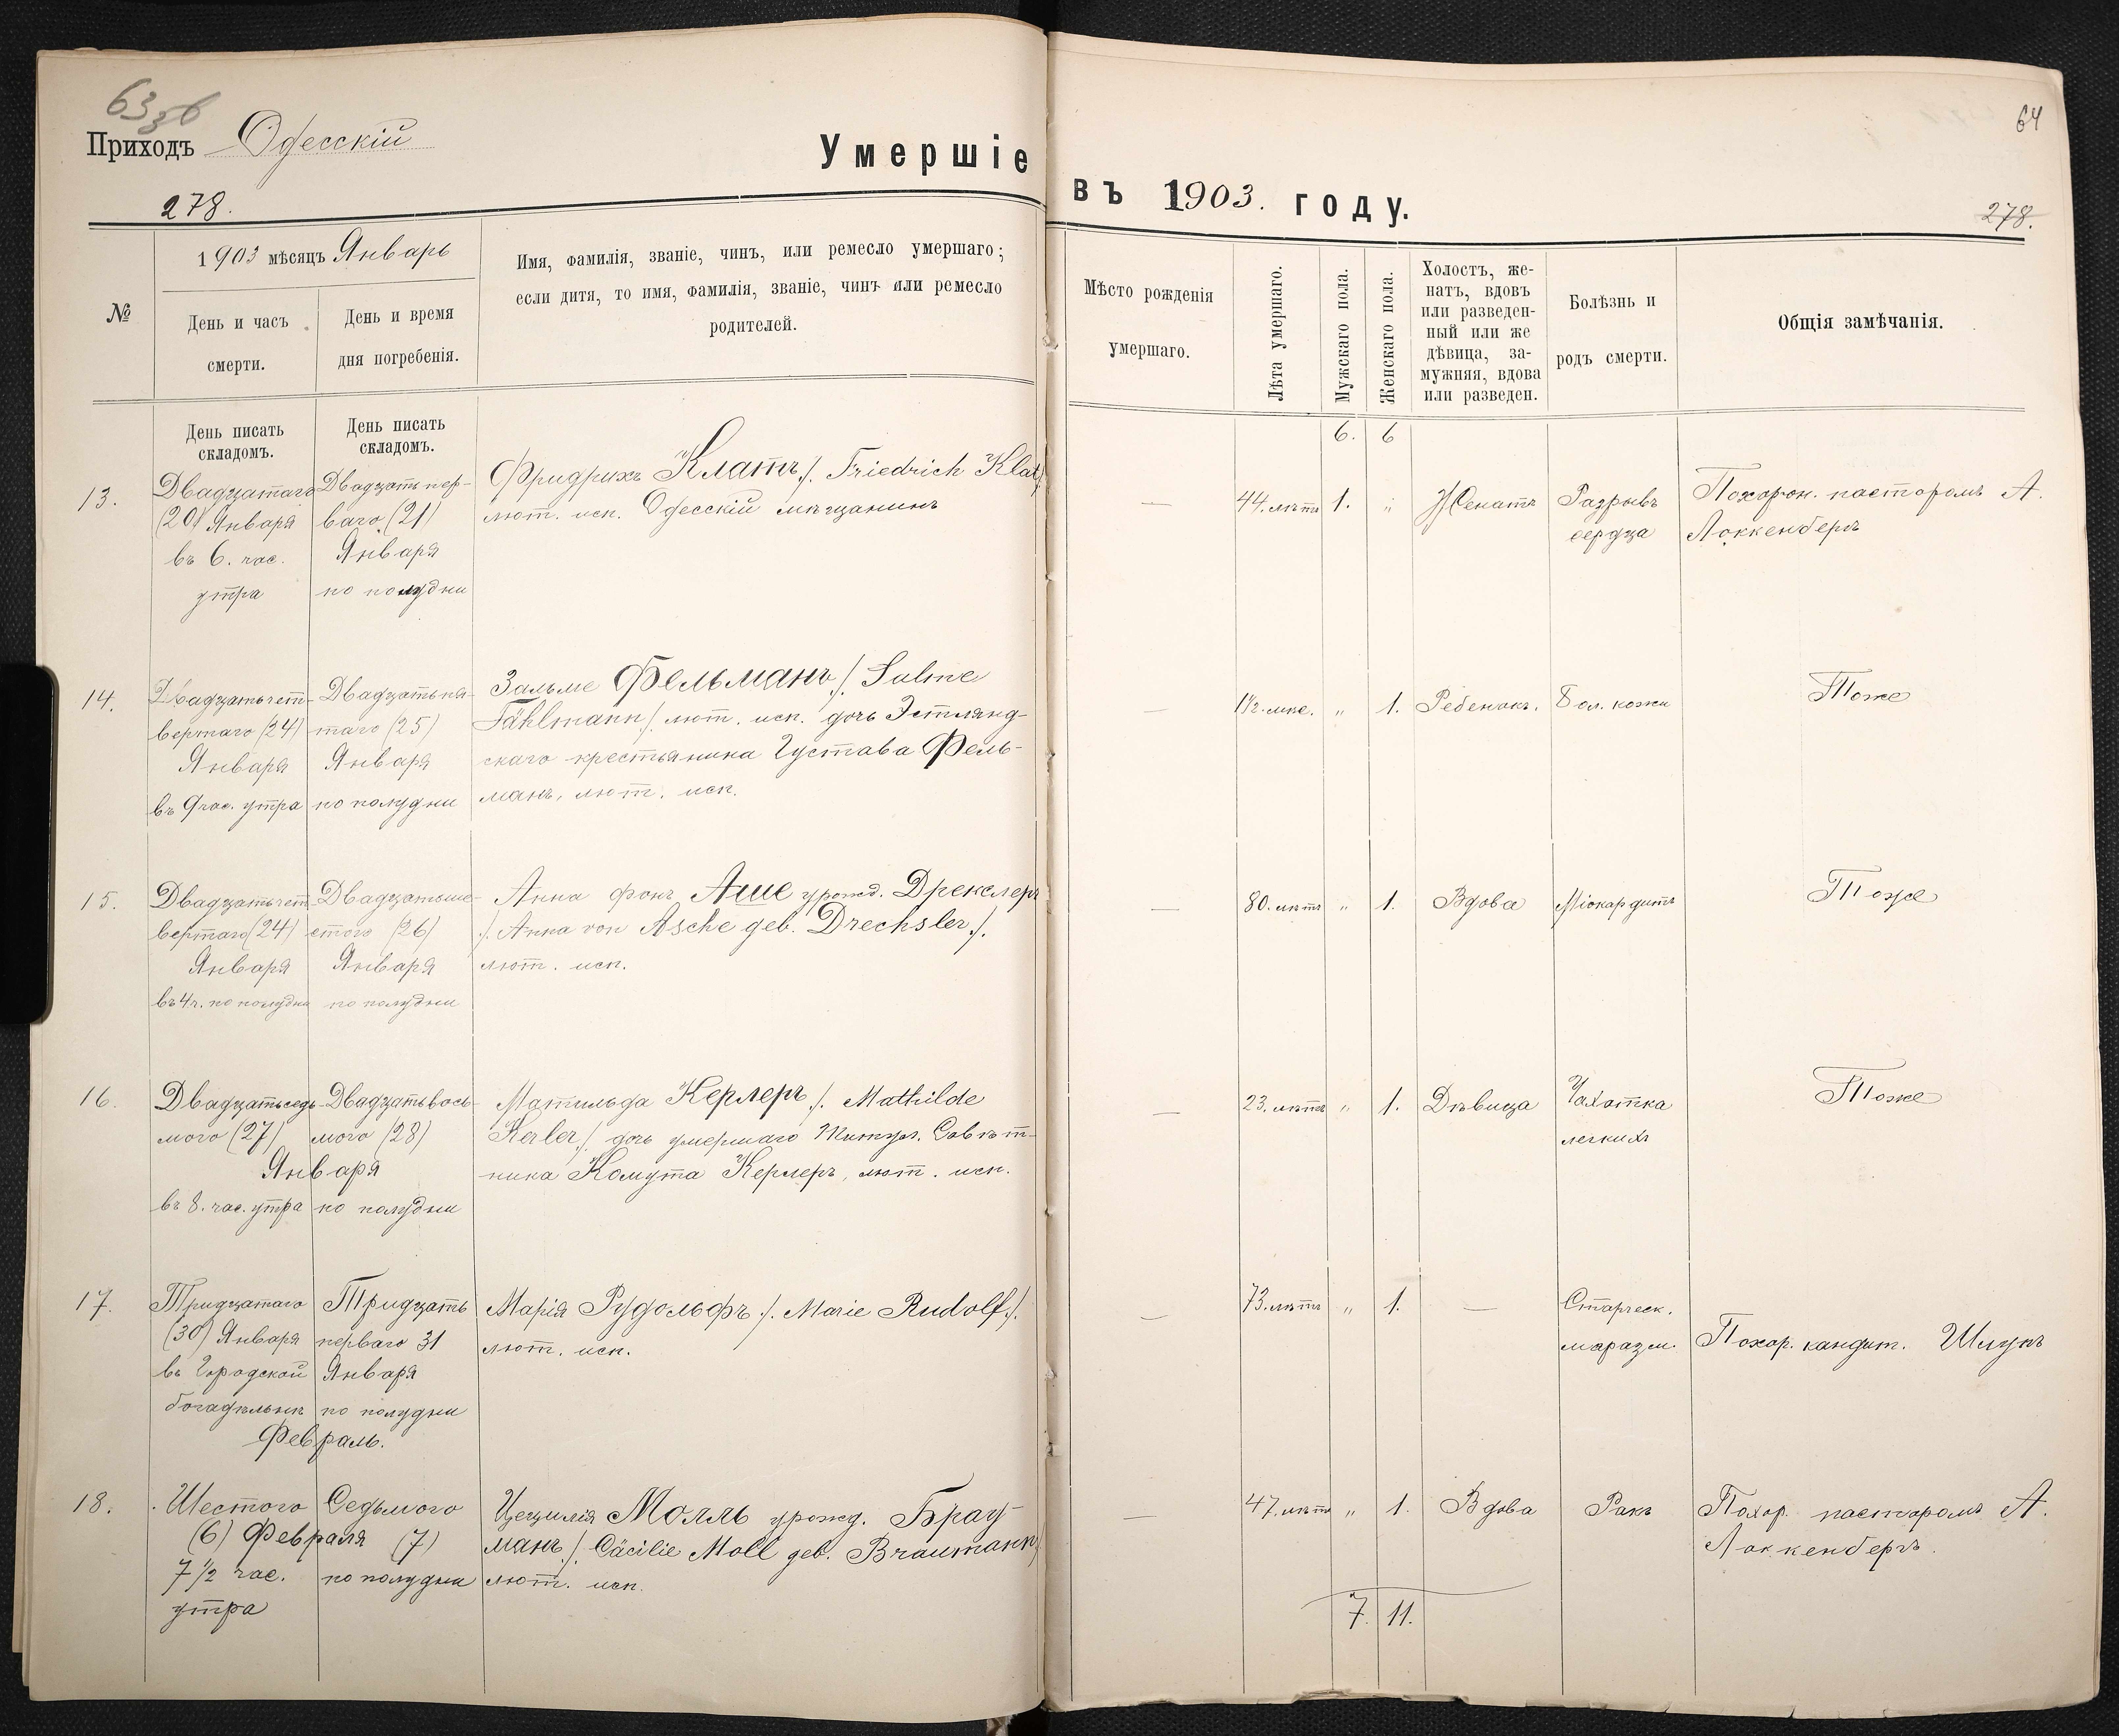 63 зб
Приходъ Одесскій
Умершіе
278.
№
1903 мѣсяцъ Январь
День и часъ
смерти.
День и время
дня погребенія.
Имя, фамилія, званіе, чинъ, или ремесло умершаго;
если дитя, то имя, фамилія, званіе, чинъ или ремесло
родителей.
День писать
складомъ.
День писать
складомъ.
13.
Двадцатаго
(20) Января
въ 6. час.
утра
Двадцать пер-
ваго (21)
Января
по полудни
Фридрихъ Клатъ /. Friedrich Klat/
лют. исп. Одесскій мѣщанинъ
14.
Двадцатьчет-
вертаго (24)
Января
въ 9 час. утра
Двадцатьпя-
таго (25)
Января
по полудни
Зальме Фельманъ /. Salme
Fählmann/. лют. исп. дочь Эстлянд-
скаго крестьянина Густава Фель-
манъ, лют. исп.
15.
Двадцатьчет-
вертаго (24)
Января
въ 4 ч. по полудни
Двадцатьше-
стого (26)
Января
по полудни
Анна фонъ Аше урожд. Дрекслеръ
/. Anna von Asche geb. Drechsler /.
лют. исп.
16.
Двадцатьседь-
мого (27)
Января
въ 8. час. утра
Двадцатьвось-
мого (28)
по полудни
Матильда Керлеръ /. Mathilde
Kerler/. дочь умершаго Титул. Совѣт-
ника Комута Керлеръ, лют. исп.
17.
Тридцатаго
(30) Января
въ Городской
богадѣльнѣ
Тридцать
перваго 31
Января
по полудни
Марія Рудольфъ /. Marie Rudolf /.
лют. исп.
Февраль.
18.
Шестого
(6) Февраля
7 1/2 час.
утра
Седьмого
(7)
по полудни
Цецилія Молль урожд. Брау-
манъ /. Cäcilie Moll geb. Braumann/
лют. исп.
64
въ 1903. году.
278.
Мѣсто рожденія
умершаго.
Лѣта умершаго.
Мужскаго пола.
Женскаго пола.
Холостъ, же-
натъ, вдовъ
или разведен-
ный или же
дѣвица, за-
мужняя, вдова
или разведен.
Болѣзнь и
родъ смерти.
Общія замѣчанія.
6. 6
— 44. лѣтъ 1. „ Женатъ
Разрывъ
сердца
Похорон. пасторомъ А.
Локкенбергъ
— 1 1/2. мѣс. „ 1. Ребенокъ. Бол. кожи Тоже
— 80. лѣтъ „ 1. Вдова Міокардитъ Тоже
— 23. лѣтъ „ 1. Дѣвица
Чахотка
легкихъ
Тоже
— 73. лѣтъ „ 1. —
Старческ.
маразм.
Похор. кандит. Шлупъ
— 47. лѣтъ „ 1. Вдова Ракъ
Похор. пасторомъ А.
Локкенбергъ.
7. 11.